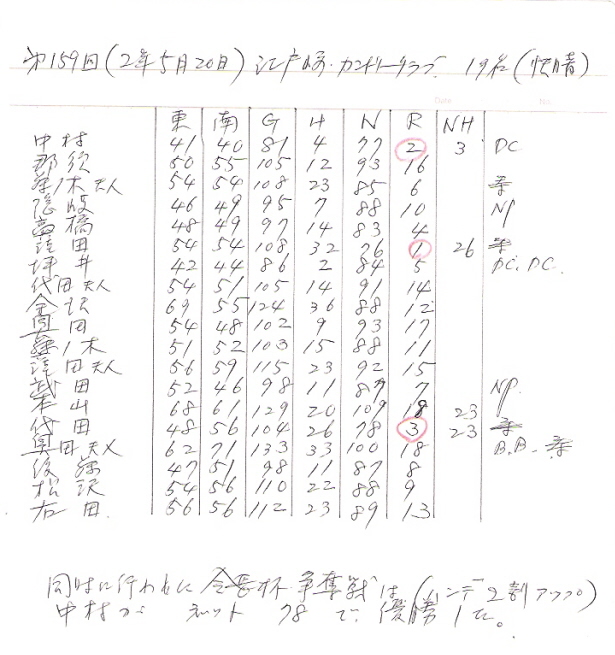 第159回(2年5月20日) 江戸崎・カントリークラブ 19名(快晴)
東 南 G H N R NH
中村 41 40 81 4 77 2 3 DC
那須 50 55 105 12 93 16
茅ノ木夫人 54 54 108 23 85 6
隠岐 46 49 95 7 88 10 NP
高橋 48 49 97 14 83 4
窪田 54 54 108 32 76 1 26
坪井 42 44 86 2 84 5 DC. DC.
代田夫人 54 51 105 14 91 14
金沢 69 55 124 36 88 12
岡田 54 48 102 9 93 17
51 52 103 15 88 11
窪田夫人 56 59 115 23 92 15
武田 52 46 98 11 87 7 NP.
本山 68 61 129 20 109 19 23
代田 48 56 104 26 78 3 23
田夫人 62 71 133 33 100 18 B.B-
後藤 47 51 98 11 87 8
松沢 54 56 110 22 88 9
右田 56 56 112 23 89 13
同時に行われた会長杯争奪戦は(ハンデ2割アップ)
中村 ネット 78で優勝した。